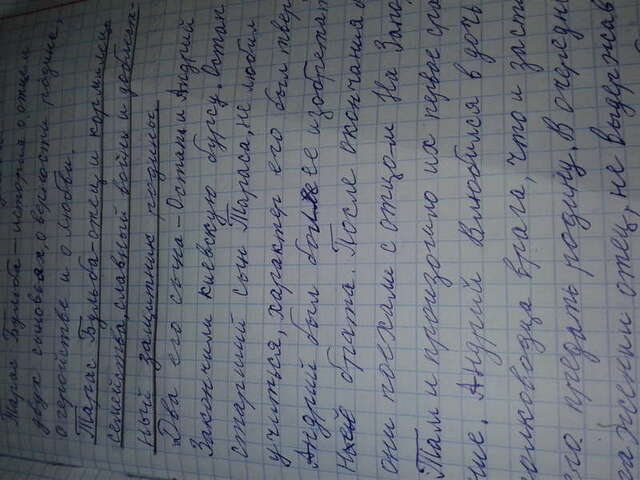 Тарас Бульба – история о отцем
двух сыновьях, о верности родине,
о геройстве и о любви.
Тарас Бульба – отец и кормилец
семейства, славный войн и доблест-
ный защитник родины.
Два его сына – Остап и Андрий
Закончили киевскую бурсу. Остап
старший сын Тараса, не любил
учиться, характер его был твёр
Андрий был более изобретат
ней брата. После окончания
они поехали с отцом На Запо
Там и произошло их первое сра
ние. Андрий Влюбился в дочь
олководца врага, что и заста
его предать родину. В очередн
жении отец, не выдержав